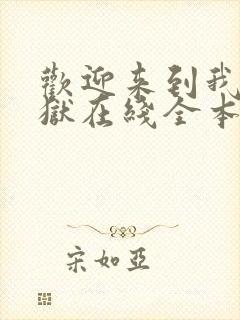 歡迎来到我
獄在綫全本
宋如亞